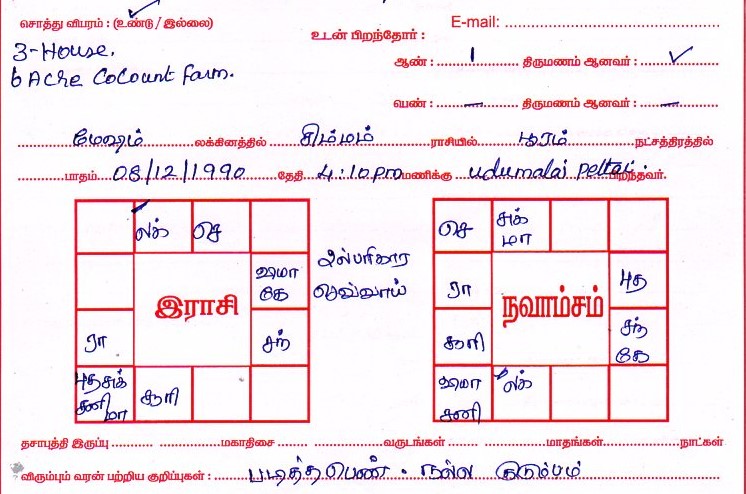 சொத்து விபரம் : (உண்டு / இல்லை)
E-mail:
3-House.
6 Acre Cocount farm.
உடன் பிறந்தோர் :
ஆண் : 1 திருமணம் ஆனவர் : ✓
பெண் : – திருமணம் ஆனவர் : –
மேஷம் லக்கினத்தில் சிம்மம் ராசியில் பூரம் நட்சத்திரத்தில்
பாதம் 08/12/1990 தேதி 4:10 pm மணிக்கு udumalai pettai பிறந்தவர்.
லக் செ
ரா
சந்
இராசி
செவ்வாய்
செ சுக் மா
ரா
புத
சந் கே
நவாம்சம்
லக்
தசாபுத்தி இருப்பு மகாதிசை வருடங்கள் மாதங்கள் நாட்கள்
விரும்பும் வரன் பற்றிய குறிப்புகள் : படித்த பெண். நல்ல குடும்பம்